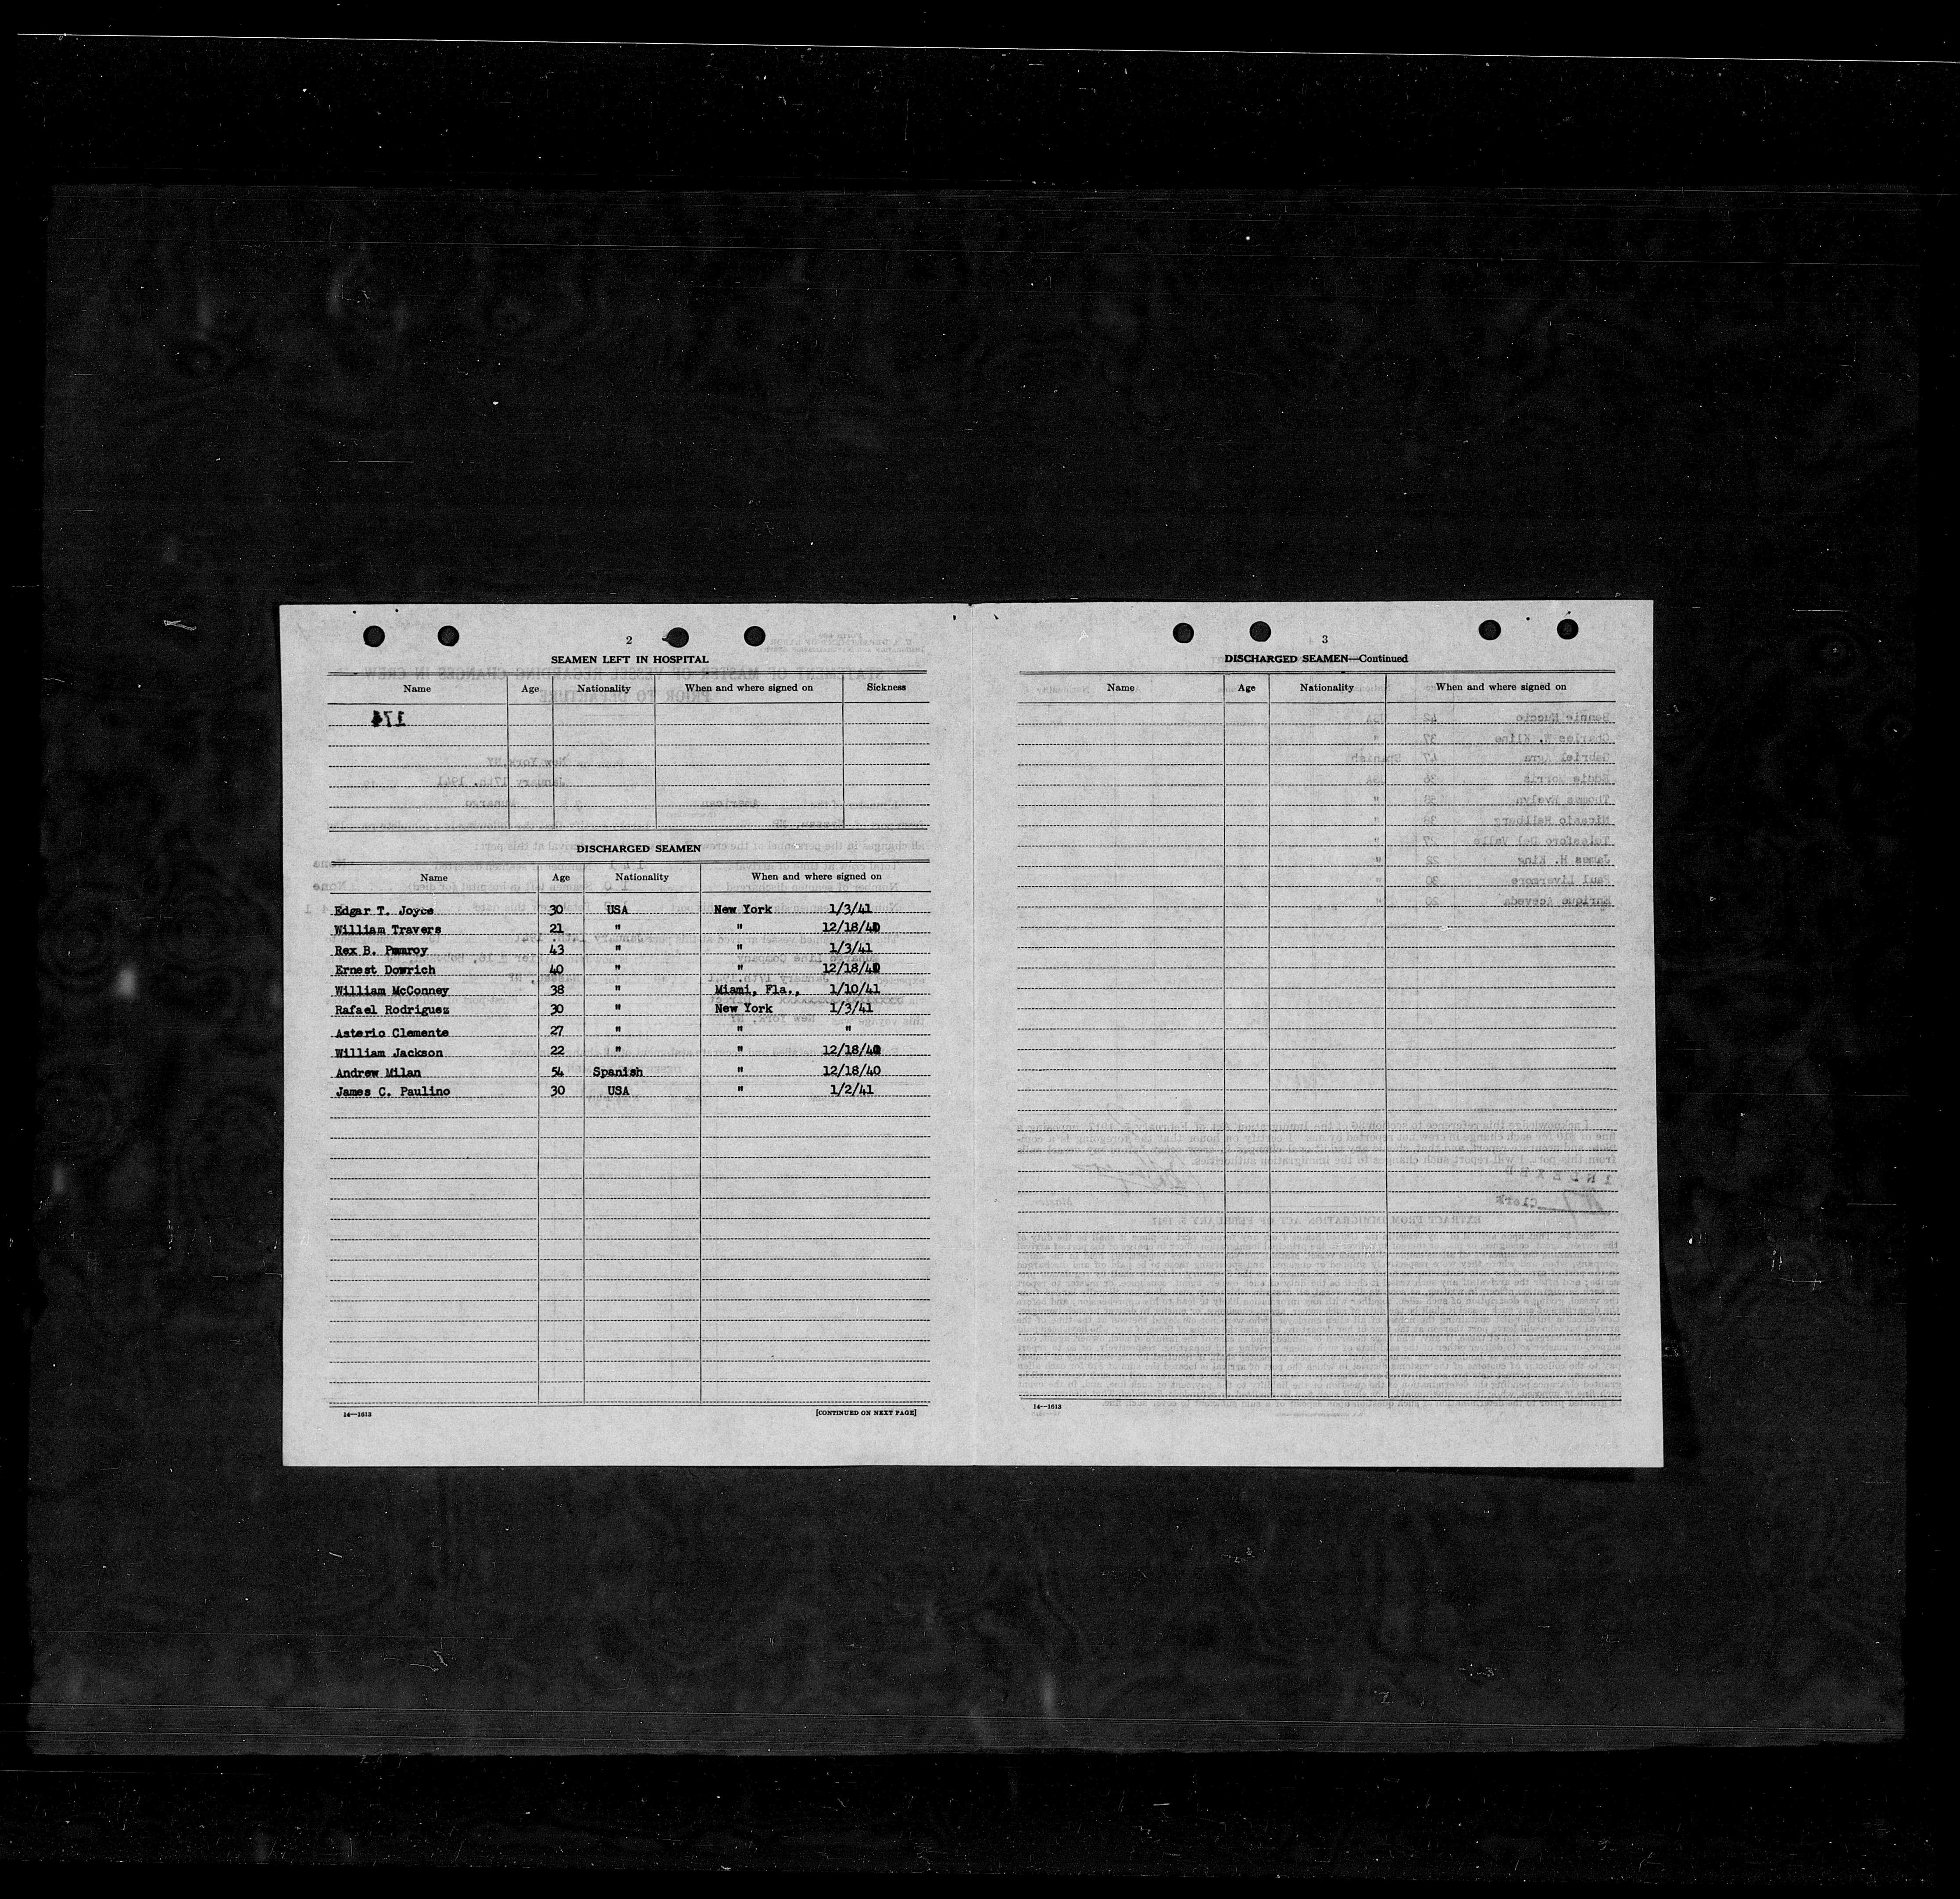 2
SEAMEN LEFT IN HOSPITAL
Name Age Nationality When and where signed on Sickness
174
DISCHARGED SEAMEN
Name Age Nationality When and where signed on
Edgar T. Joyce 30 USA New York 1/3/41
William Travers 21 " " 12/18/40
Rex B. Pomroy 43 " " 1/3/41
Ernest Dowrich 40 " " 12/18/40
William McConney 38 " Miami, Fla., 1/10/41
Rafael Rodriguez 30 " New York 1/3/41
Asterio Clemente 27 " " "
William Jackson 22 " " 12/18/40
Andrew Milan 54 Spanish " 12/18/40
James C. Paulino 30 USA " 1/2/41
14—1613 [CONTINUED ON NEXT PAGE]
3
DISCHARGED SEAMEN—Continued
Name Age Nationality When and where signed on
14—1613